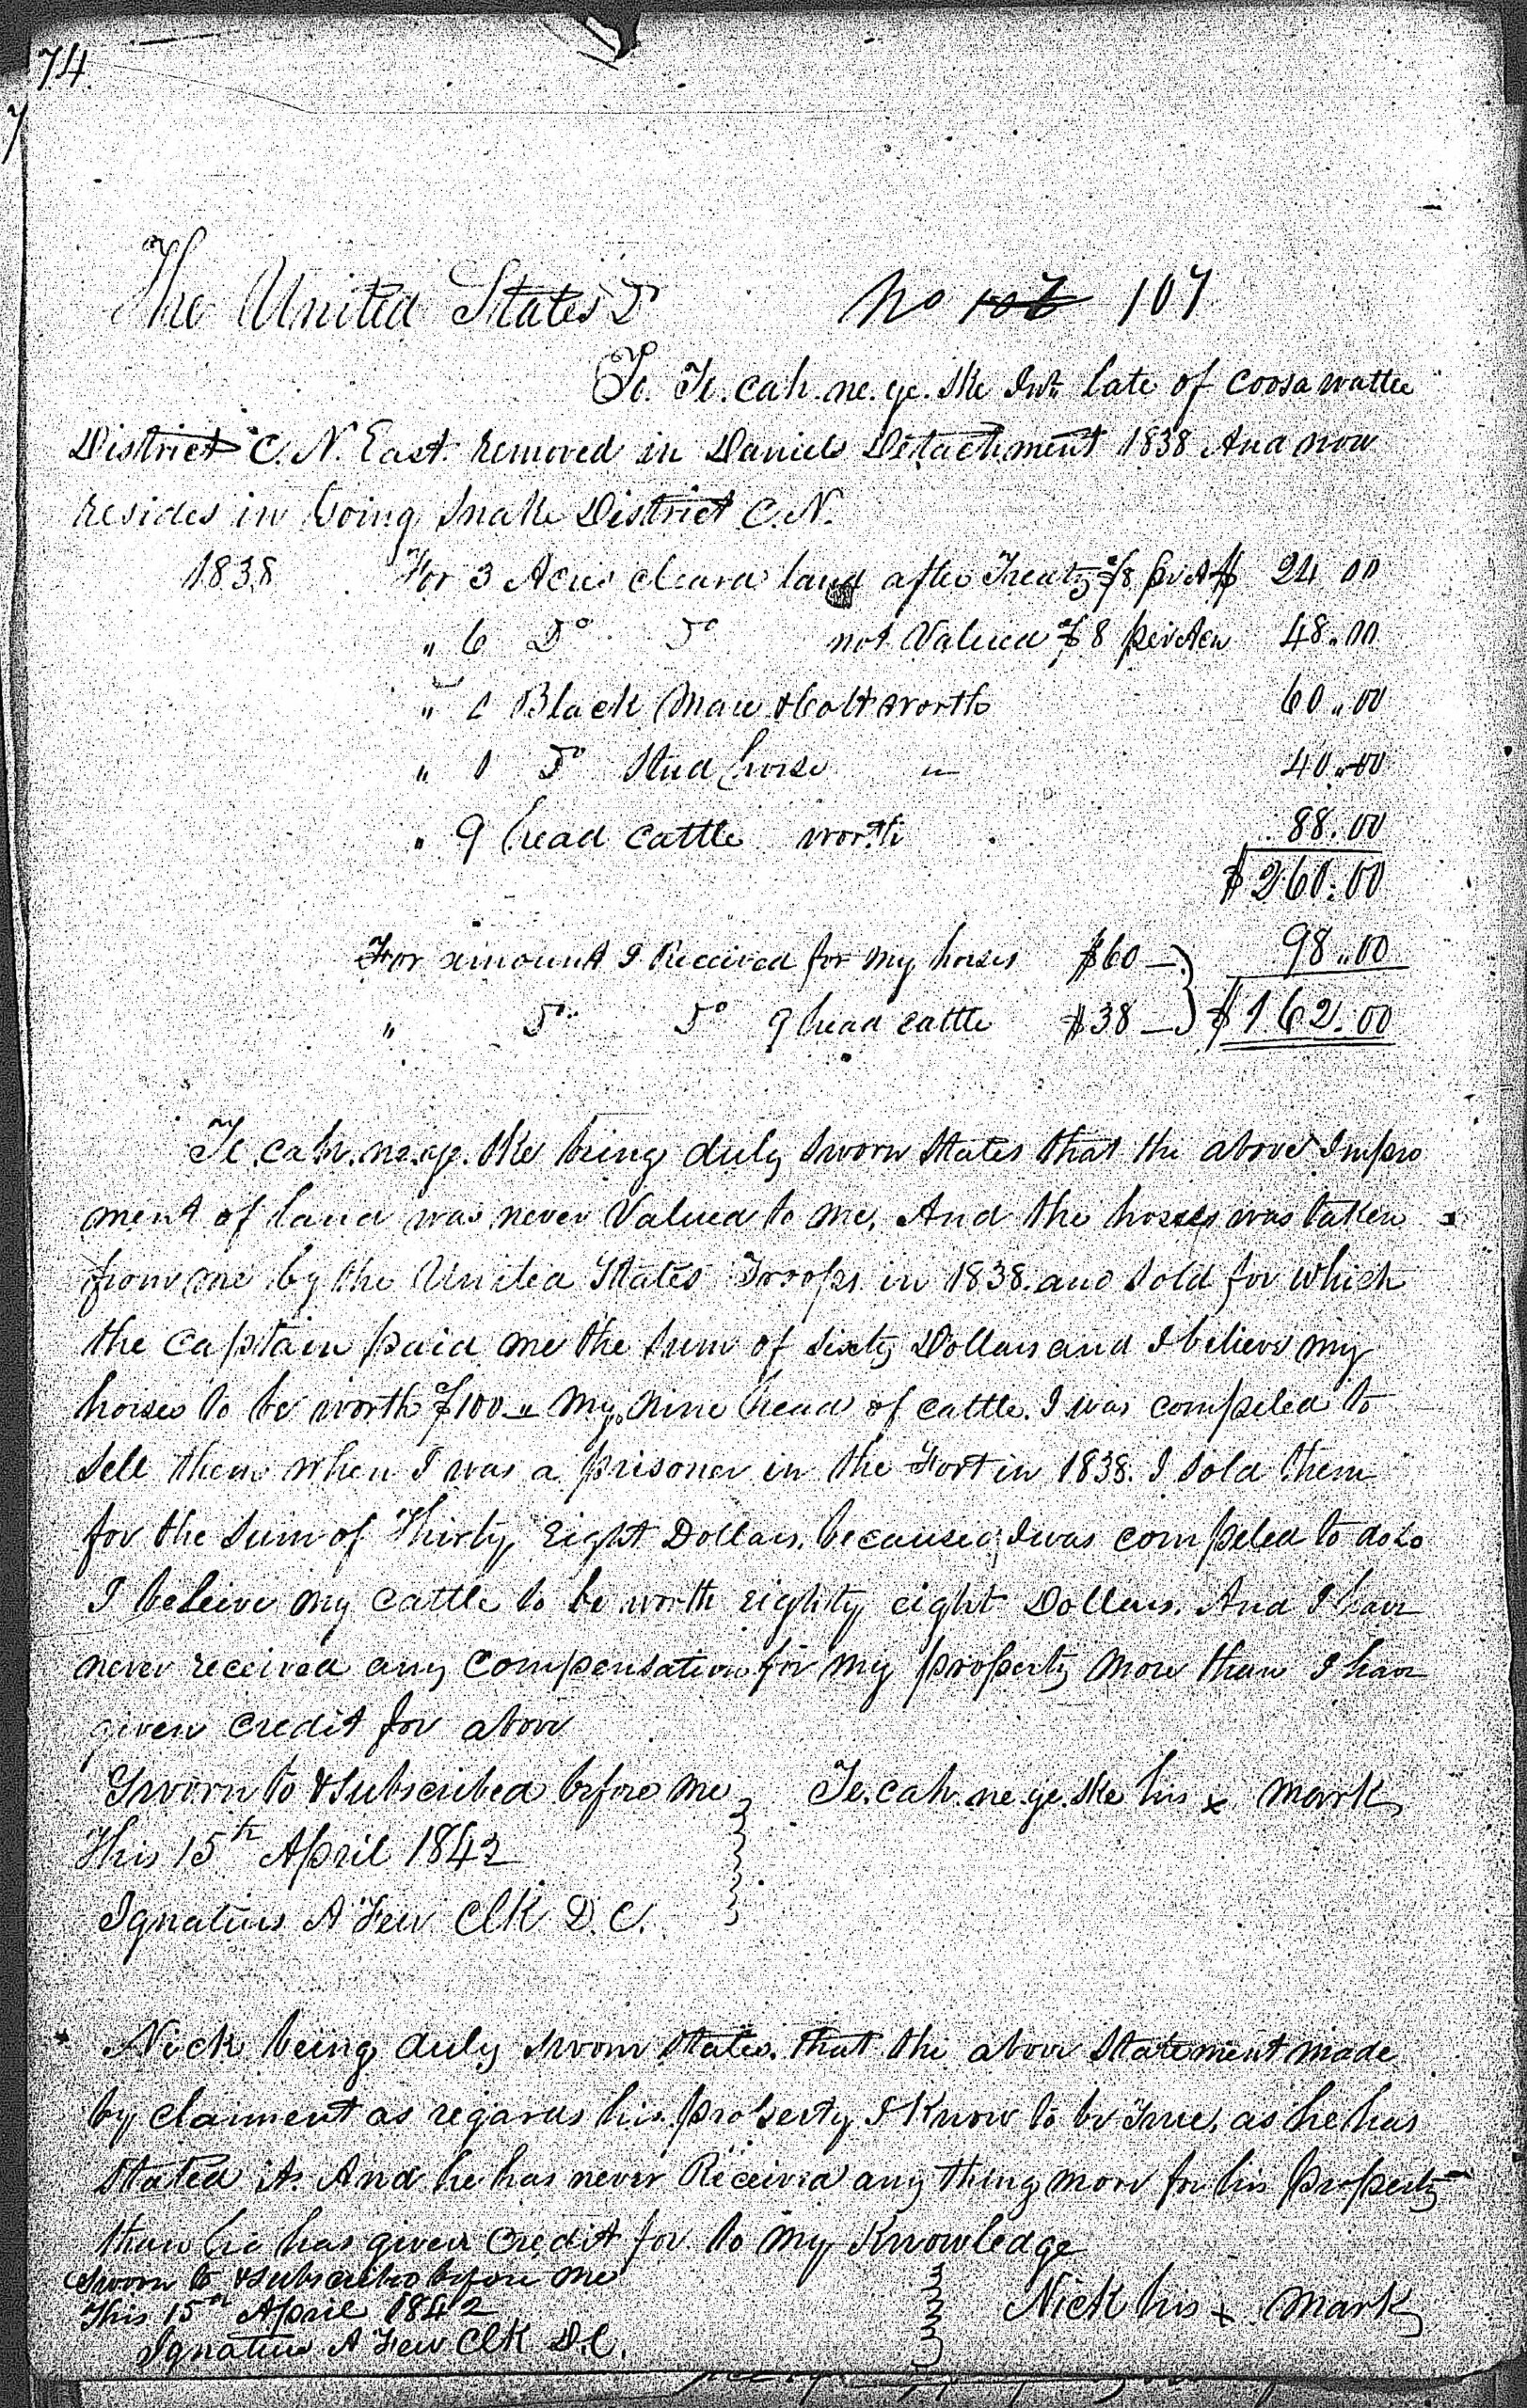 74
The United States Dr No 106 107
To Te.cah.ne.ye.ske Int. late of Coosawattee
District C. N. East. Removed in Daniels Detachment 1838 And now
resides in Going Snake District C. N.
1838 For 3 Acres cleard land after Treaty $8 pr A $ 24 00
" 6 Do Do not Valued $8 per Acr 48.00
" 1 Black Mare & Colt worth 60.00
" 1 Do Stud horse " 40.00
" 9 head cattle worth 88.00
$260.00
For amount I Received for my horses $60 — 98.00
" Do Do 9 head cattle $38 — $162.00
Te.cah.ne.ye.ske being duly sworn States that the above Impro
ment of land was never Valued to me, And the horses was taken
from me by the United States Troops in 1838. and sold for which
the Captain paid me the sum of sixty Dollars and I believe my
horses to be worth $100 — My nine head of cattle. I was compeled to
sell them when I was a prisoner in the Fort in 1838. I sold them
for the sum of Thirty Eight Dollars. because I was compeled to do so
I beleive my cattle to be worth Eighty eight Dollars. And I have
never received any compensation for my property more than I have
given credit for above
Sworn to & subscribed before me Te.cah.ne.ye.ske his x mark
This 15th April 1842
Ignatius A Few Clk D. C.
Nick being duly sworn states. that the above statement made
by claiment as regards his property I Know to be True, as he has
stated it. And he has never Received any thing more for his property
than he has given credit for to my Knowledge
Sworn to & subscribed before me
This 15th April 1842 Nick his x mark
Ignatius A Few Clk D.C.